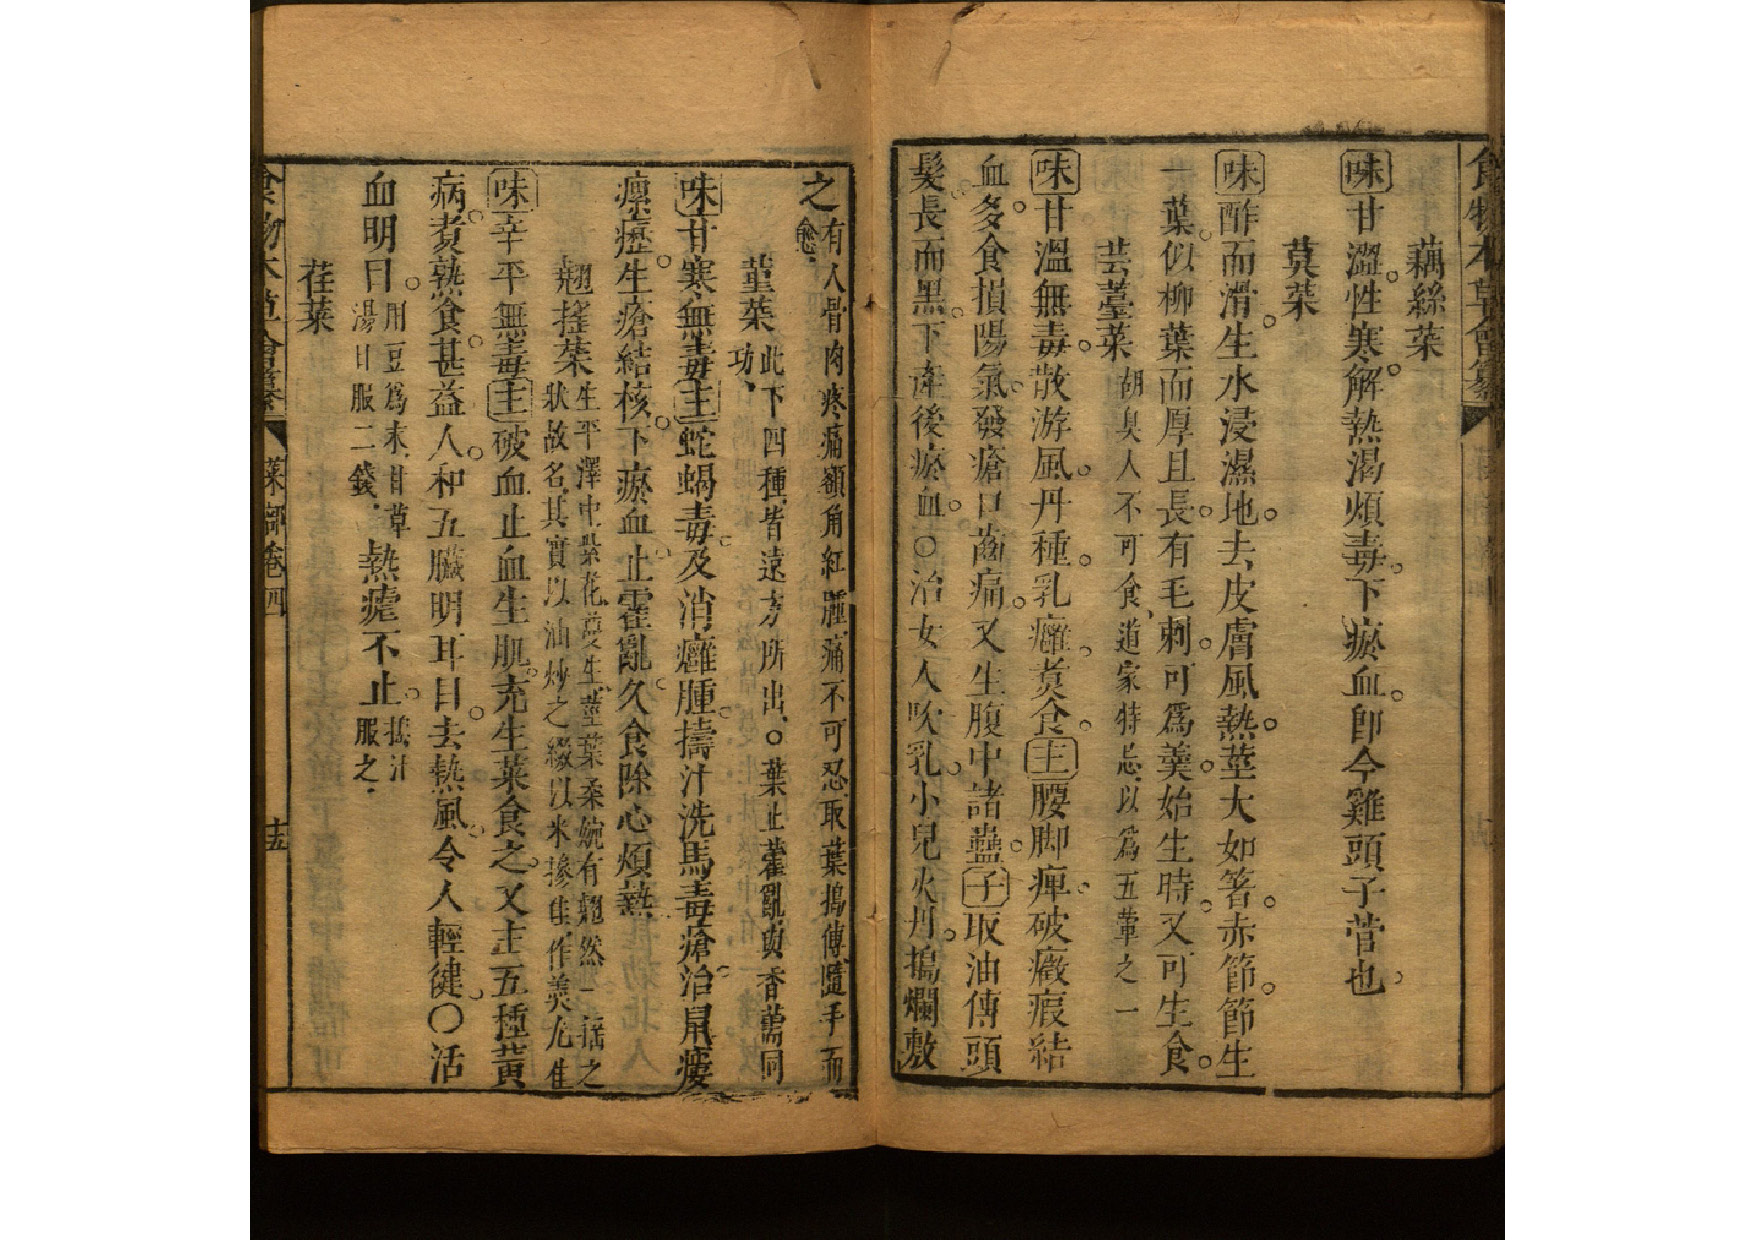 食物本草會纂
藕絲菜
味甘澀性寒解熱渴煩毒下瘀血卽今雞頭子菅也
莫菜
味酢而滑生水浸濕地去皮膚風熱莖大如箸赤節節生
一葉似柳葉而厚且長有毛刺可爲羹始生時又可生食
芸薹菜胡臭人不可食道家特忌以爲五葷之一
味甘溫無毒散游風丹種乳癰煑食主腰脚痺破癥瘕結
血多食損陽氣發瘡口齒痛又生腹中諸蠱子取油傅頭
髮長而黑下產後瘀血○治女人吹乳小兒火丹搗爛敷
之有人骨肉疼痛額角紅腫痛不可忍取葉搗傅隨手而
愈
菫菜此下四種皆遠方所出○葉止藿亂與香薷同
功
味甘寒無毒主蛇蝎毒及消癰腫擣汁洗馬毒瘡治鼠瘻
瘰癧生瘡結核下瘀血止霍亂久食除心煩熱
翹搖菜生平澤中紫花蔓生莖葉柔婉有翹然一搖之
狀故名其實以油炒之綴以米糝
味辛平無毒主破血止血生肌充生菜食之又主五種黃
病煑熟食甚益人和五臟明耳目去熱風令人輕健○活
血明目用豆爲末甘草
湯日服二錢
熱瘧不止擣汁
服之
荏菜
食物本草會纂 菜部卷四 十五